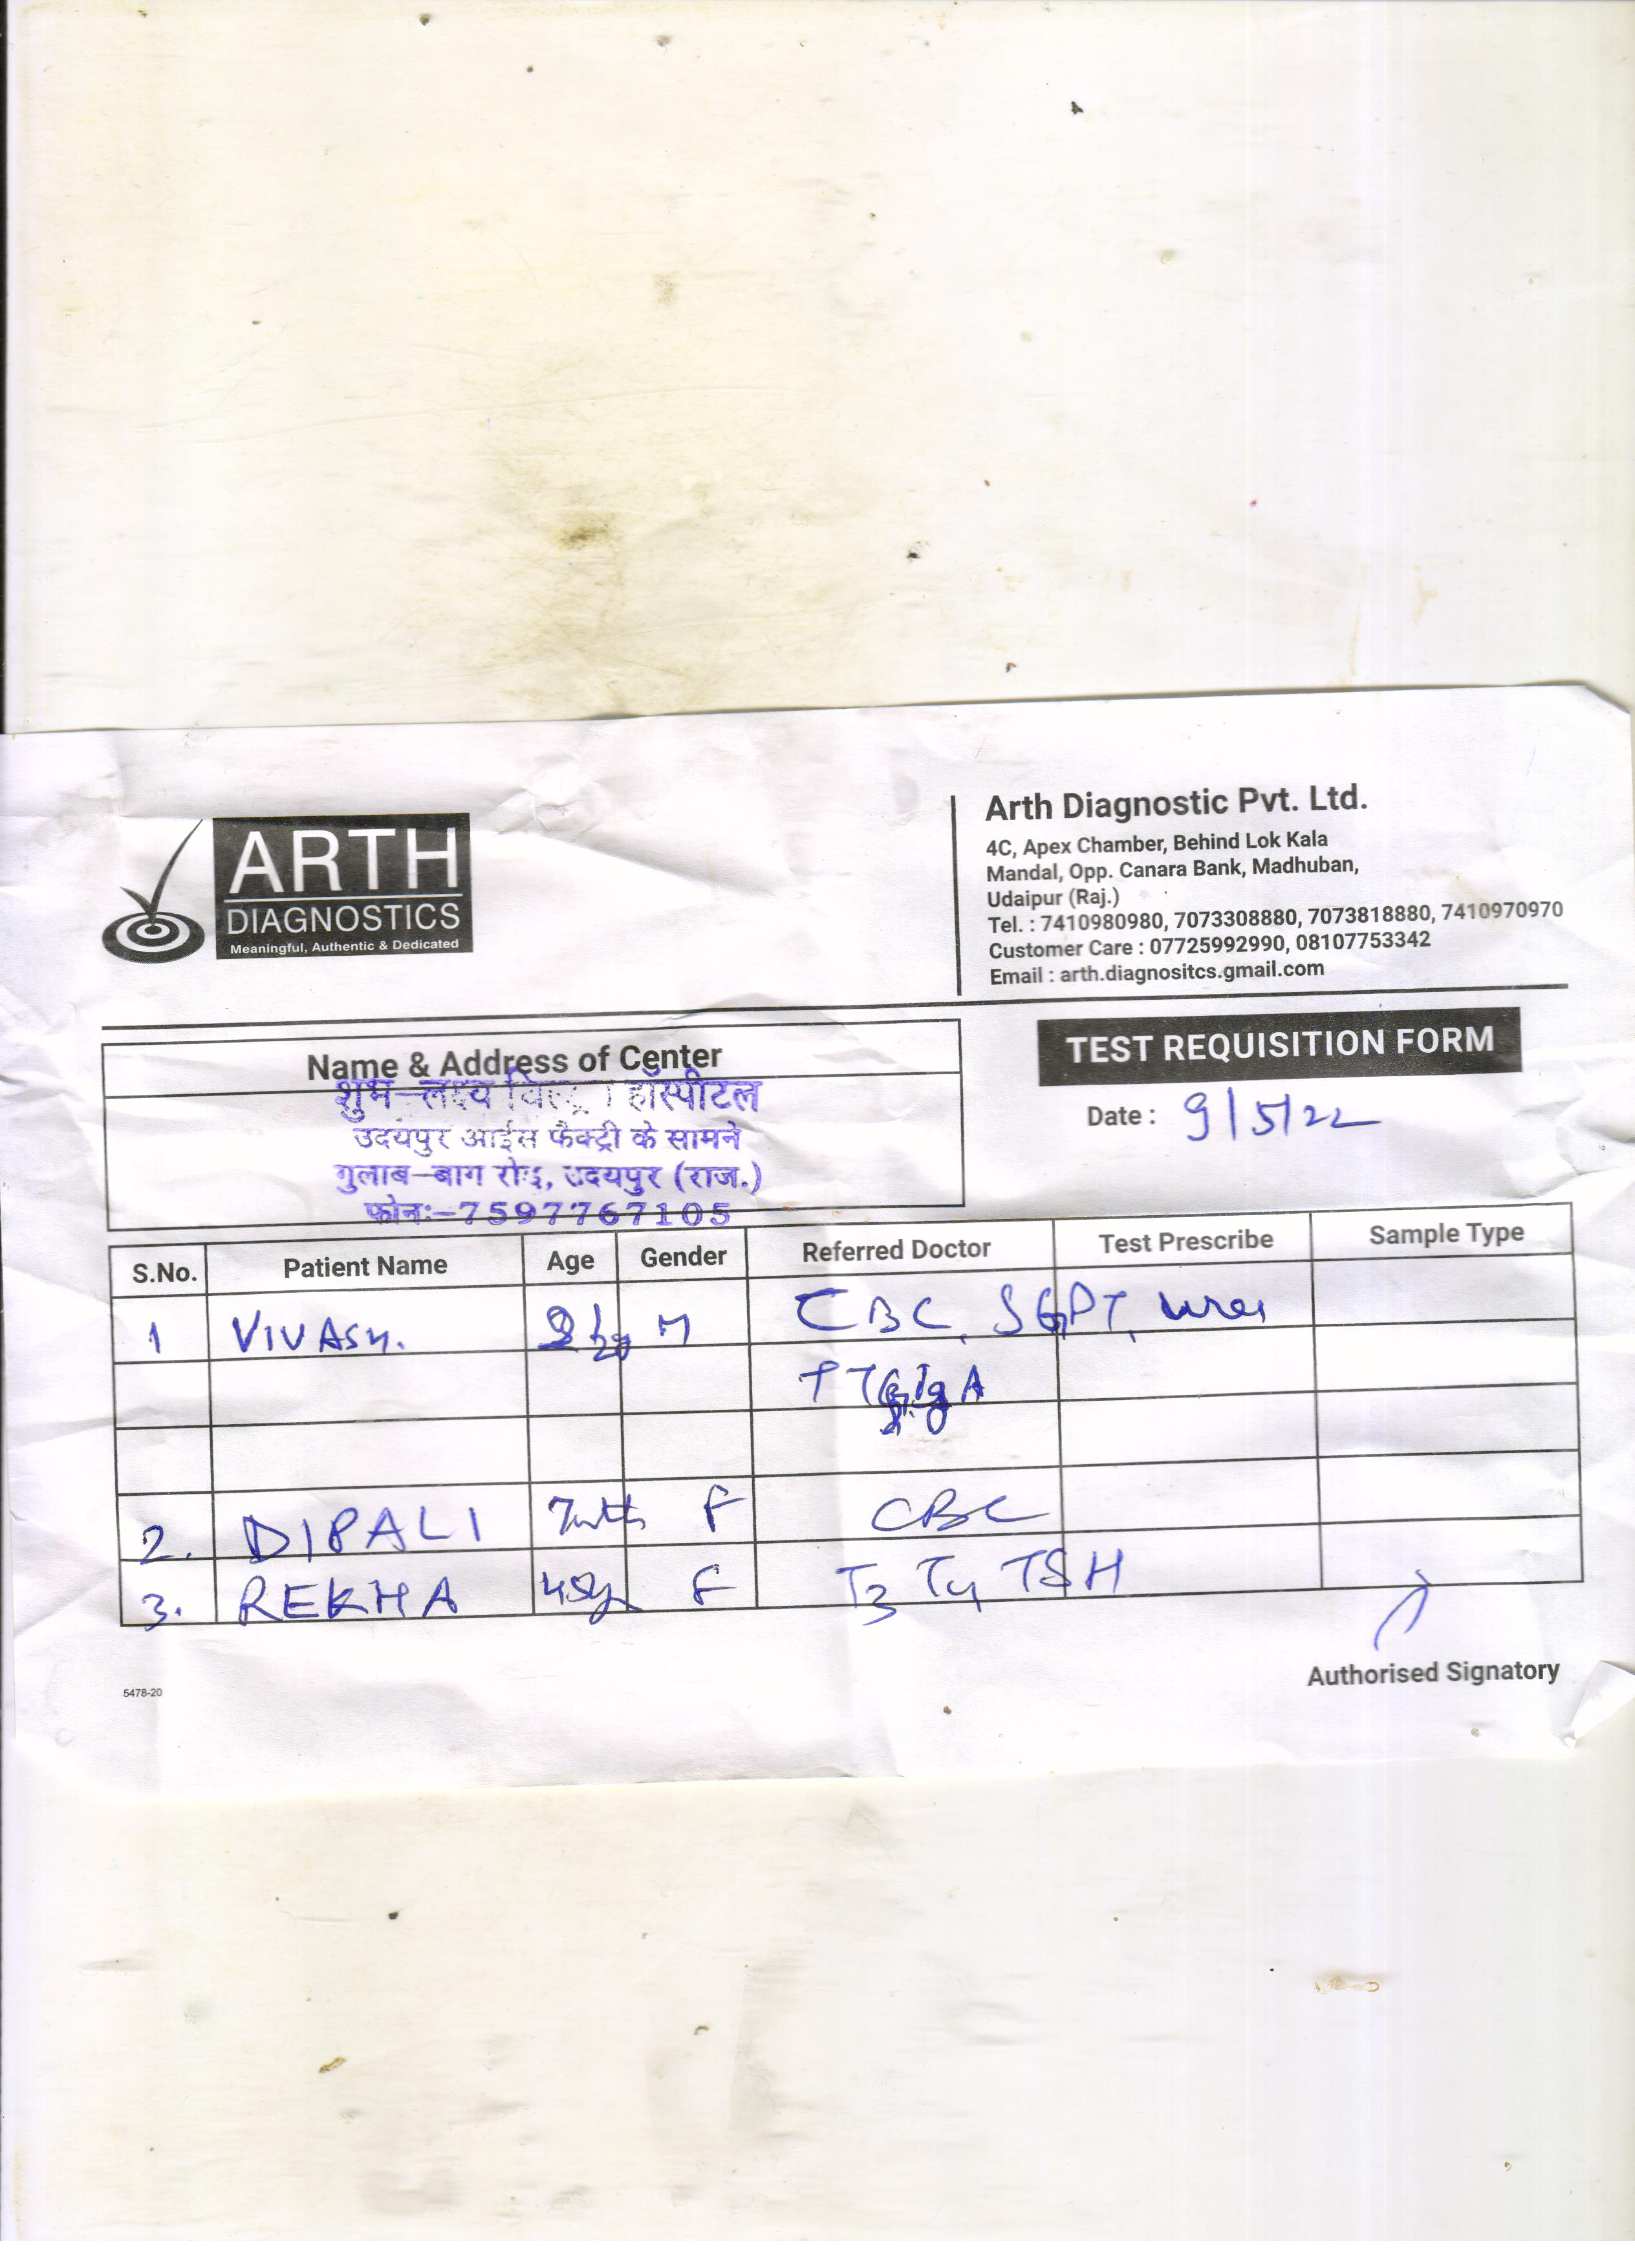 ARTH
DIAGNOSTICS
Meaningful, Authentic & Dedicated
Arth Diagnostic Pvt. Ltd.
4C, Apex Chamber, Behind Lok Kala
Mandal, Opp. Canara Bank, Madhuban,
Udaipur (Raj.)
Tel. : 7410980980, 7073308880, 7073818880, 7410970970
Customer Care : 07725992990, 08107753342
Email : arth.diagnositcs.gmail.com
Name & Address of Center
शुभ-लक्ष्य हॉस्पीटल
उदयपुर आईस फैक्ट्री के सामने
गुलाब-बाग रोड़, उदयपुर (राज.)
फोनः-7597767105
TEST REQUISITION FORM
Date : 9/5/22
S.No. Patient Name Age Gender Referred Doctor Test Prescribe Sample Type
1 M CBC, SGPT, urea
TTG IgA
2. DIPALI F CBC
3. REKHA 45y F T3 T4 TSH
Authorised Signatory
5478-20